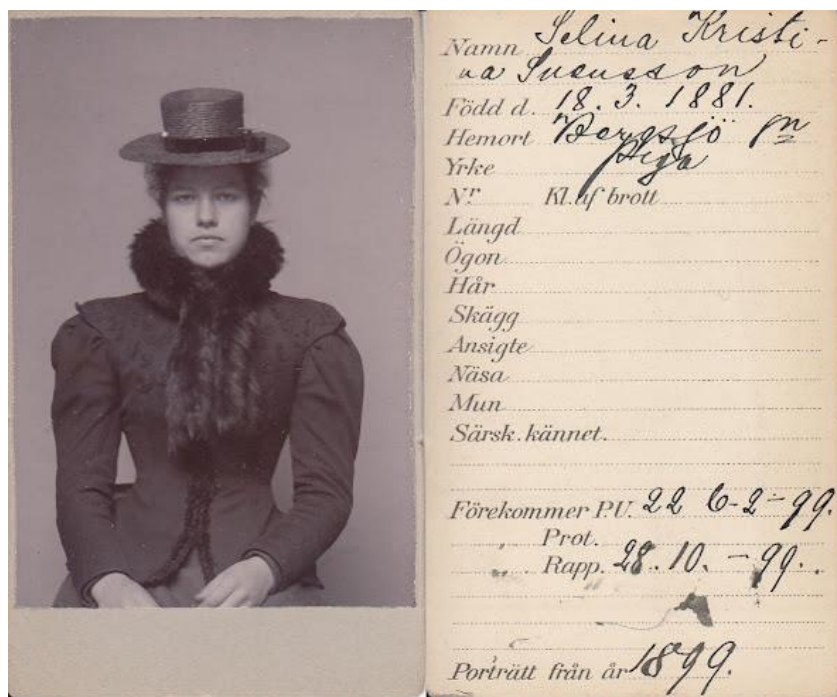 Namn Selina Kristi-
na Svensson
Född d. 18. 3. 1881.
Hemort Bergsjö fn
Yrke Piga
Nr. Kl. af brott
Längd
Ögon
Hår
Skägg
Ansigte
Näsa
Mun
Särsk. kännet.
Förekommer PU. 22 6-2-99.
„ Prot.
„ Rapp. 28. 10. - 99.
Porträtt från år 1899.